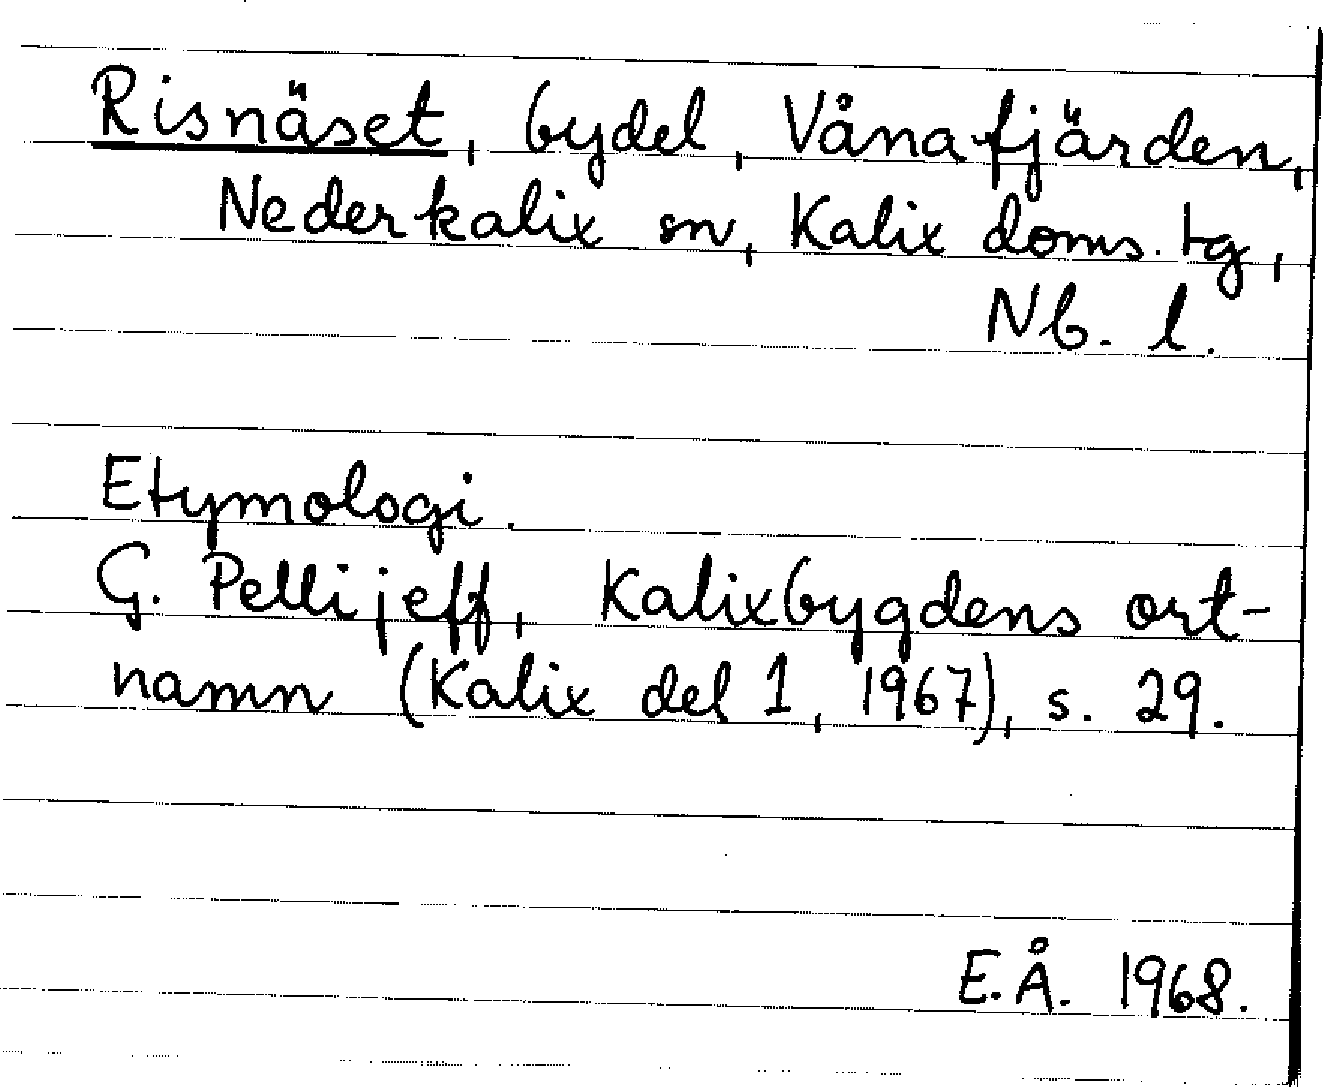 Risnäset, bydel, Vånafjärden,
Nederkalix sn, Kalix doms. tg,
Nb. l.
Etymologi.
G. Pellijeff, Kalixbygdens ort-
namn (Kalix del 1, 1967), s. 29.
E.Å. 1968.